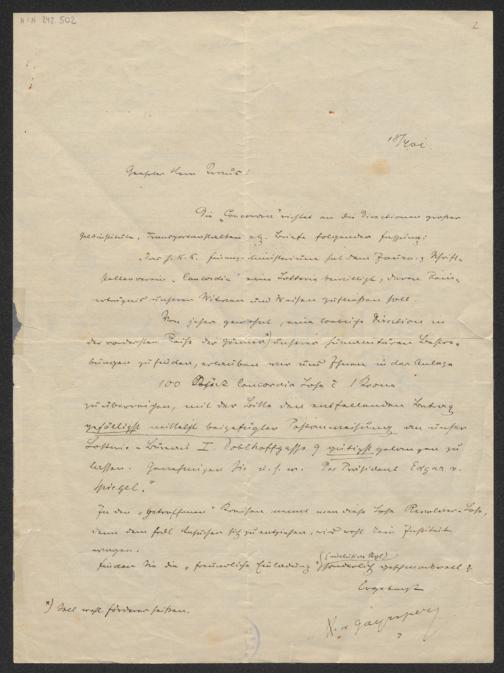 H.I.N. 242.502
2
18/XII.
Geehrter Herr Kraus!
Die „Concordia" richtet an die Directionen großer
Geldinstitute, Transportanstalten etc. Briefe folgender Fassung:
„Das h. k. k. Finanzministerium hat dem Journ. & Schrift-
stellerverein „Concordia" eine Lotterie bewilligt, deren Rein-
erträgnis unseren Witwen und Waisen zufließen soll
Von jeher gewohnt, eine löbliche Direction in
der vordersten Reihe der Gönner*) unserer humanitären Bestre-
bungen zu finden, erlauben wir uns Ihnen in der Anlage
100 Stück Concordia Lose à 1 Krone
zu überreichen, mit der Bitte den entfallenden Betrag
gefälligst mittelst beigefügter Postanweisung an unser
Lotterie-Bureau I. Doblhoffgasse 9 gütigst gelangen zu
lassen. Genehmigen Sie u.s.w. Der Präsident Edgar v.
Spiegel."
In den „betroffenen" Kreisen nennt man diese Lose Revolver-Lose,
denn dem Ansuchen sich zu entziehen, wird wohl kein Institut
wagen.
Finden Sie die „freundliche Einladung" sonderlich geschmackvoll?
Ergebenst
*) Soll wohl Förderer heißen.